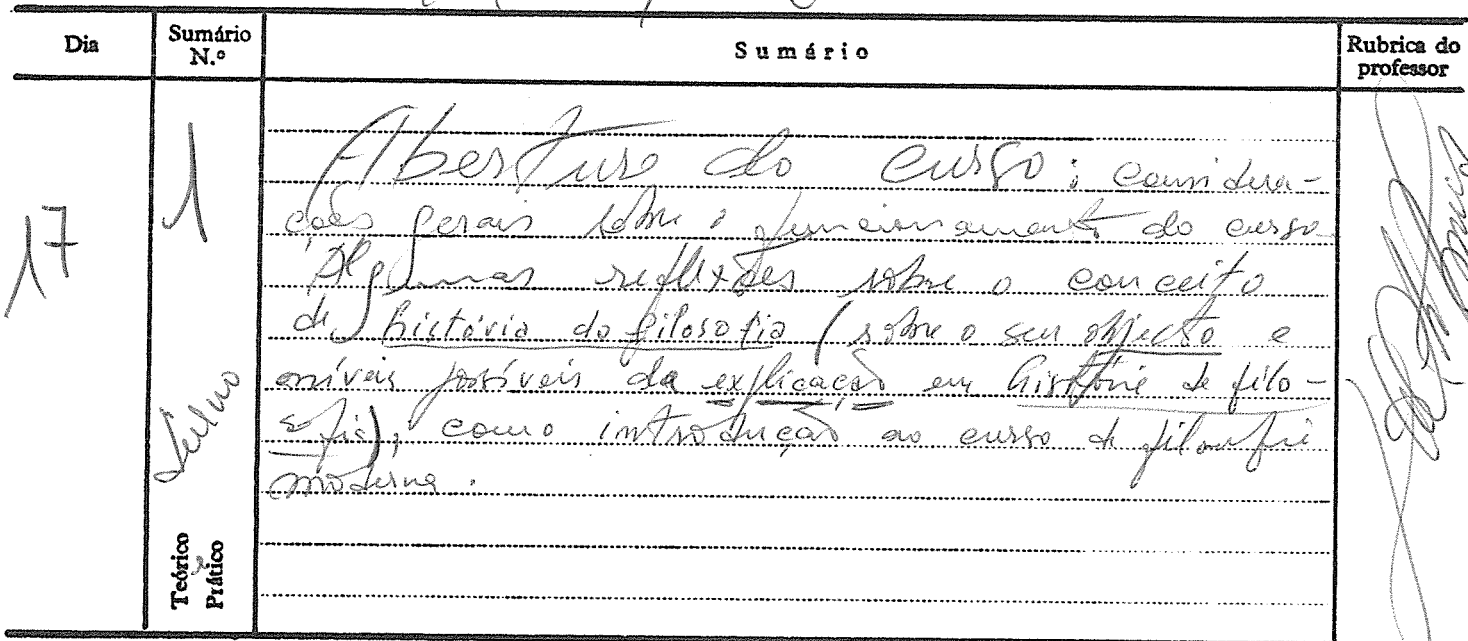 Dia
Sumário N.º
Sumário
Rubrica do professor
17
1
Abertura do curso; considera-
ções gerais sobre o funcionamento do curso
Algumas reflexões sobre o conceito
de história da filosofia (sobre o seu objecto e
níveis possíveis da explicação em história da filo-
sofia), como introdução ao curso de filosofia
moderna.
Teórico
e
Prático